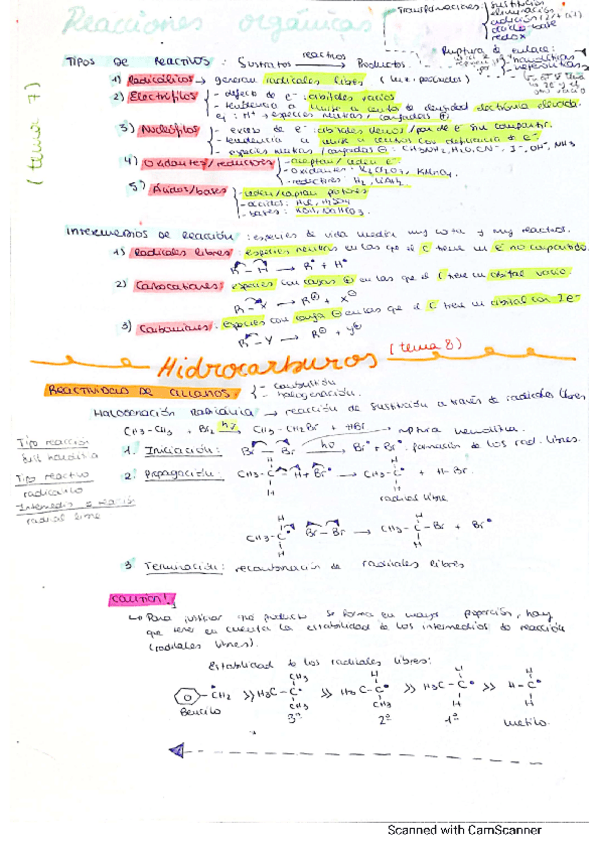 Reacciones orgánicas
Transformaciones: sustitución
eliminación
adición
ácido-base
redox
Ruptura de enlace:
homolíticas
heterolíticas
(tema 7)
TIPOS DE REACTIVOS: Sustratos reactivos → Productos
1) Radicálicos → generan radicales libres
2) Electrófilos - defecto de e⁻: orbitales vacíos
- tendencia a unirse a centro de densidad electrónica elevada
ej: H⁺ → especies neutras, cargadas ⊕
3) Nucleófilos - exceso de e⁻: orbitales llenos / par de e⁻ sin compartir
- tendencia a unirse a centros con deficiencia de e⁻
- especies neutras / cargadas ⊖: CH3NH2, H2O, CN⁻, I⁻, OH⁻, NH3
4) Oxidantes/reductores - aceptan/ceden e⁻
- oxidantes: K2Cr2O7, KMnO4
- reductores: H2, LiAlH4
5) Ácidos/bases - ceden/captan protones
- ácidos: HCl, H2SO4
- bases: KOH, NaHCO3.
INTERMEDIOS DE REACCIÓN: especies de vida media muy corta y muy reactivos.
1) Radicales libres: especies neutras en las que el C tiene un e⁻ no compartido
R – H → R• + H•
2) Carbocationes: especies con carga ⊕ en las que el C tiene un orbital vacío.
R – X → R⊕ + X⊖
3) Carbaniones: especies con carga ⊖ en las que el C tiene un orbital con 2e⁻
R – Y → R⊖ + Y⊕
Hidrocarburos (tema 8)
REACTIVIDAD DE ALCANOS - combustión
- halogenación.
HALOGENACIÓN RADICÁLICA → reacción de sustitución a través de radicales libres
CH3-CH3 + Br2 hν → CH3-CH2Br + HBr → ruptura homolítica.
Tipo reacción
Tipo reactivo
radicálico
Intermedio reacción
radical libre
1. Iniciación: Br – Br hν → Br• + Br• formación de los rad. libres.
2. Propagación: CH3-C-H + Br• → CH3-C• + H-Br.
radical libre
CH3-C• Br – Br → CH3-C-Br + Br•
3 Terminación: recombinación de radicales libres
CAUTION!
↳ Para justificar qué producto se forma en mayor proporción, hay
que tener en cuenta la estabilidad de los intermedios de reacción
(radicales libres).
Estabilidad de los radicales libres:
CH2 >> H3C-C• >> H3C-C• >> H3C-C• >> H-C•
Bencilo 3ª 2ª 1ª metilo.
Scanned with CamScanner